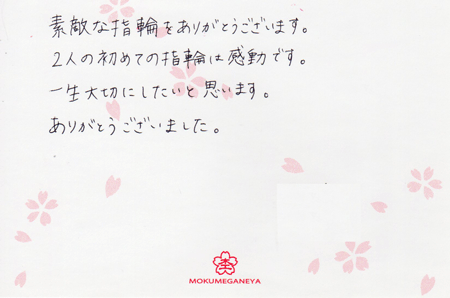 素敵な指輪をありがとうございます。
2人の初めての指輪は感動です。
一生大切にしたいと思います。
ありがとうございました。
MOKUMEGANEYA